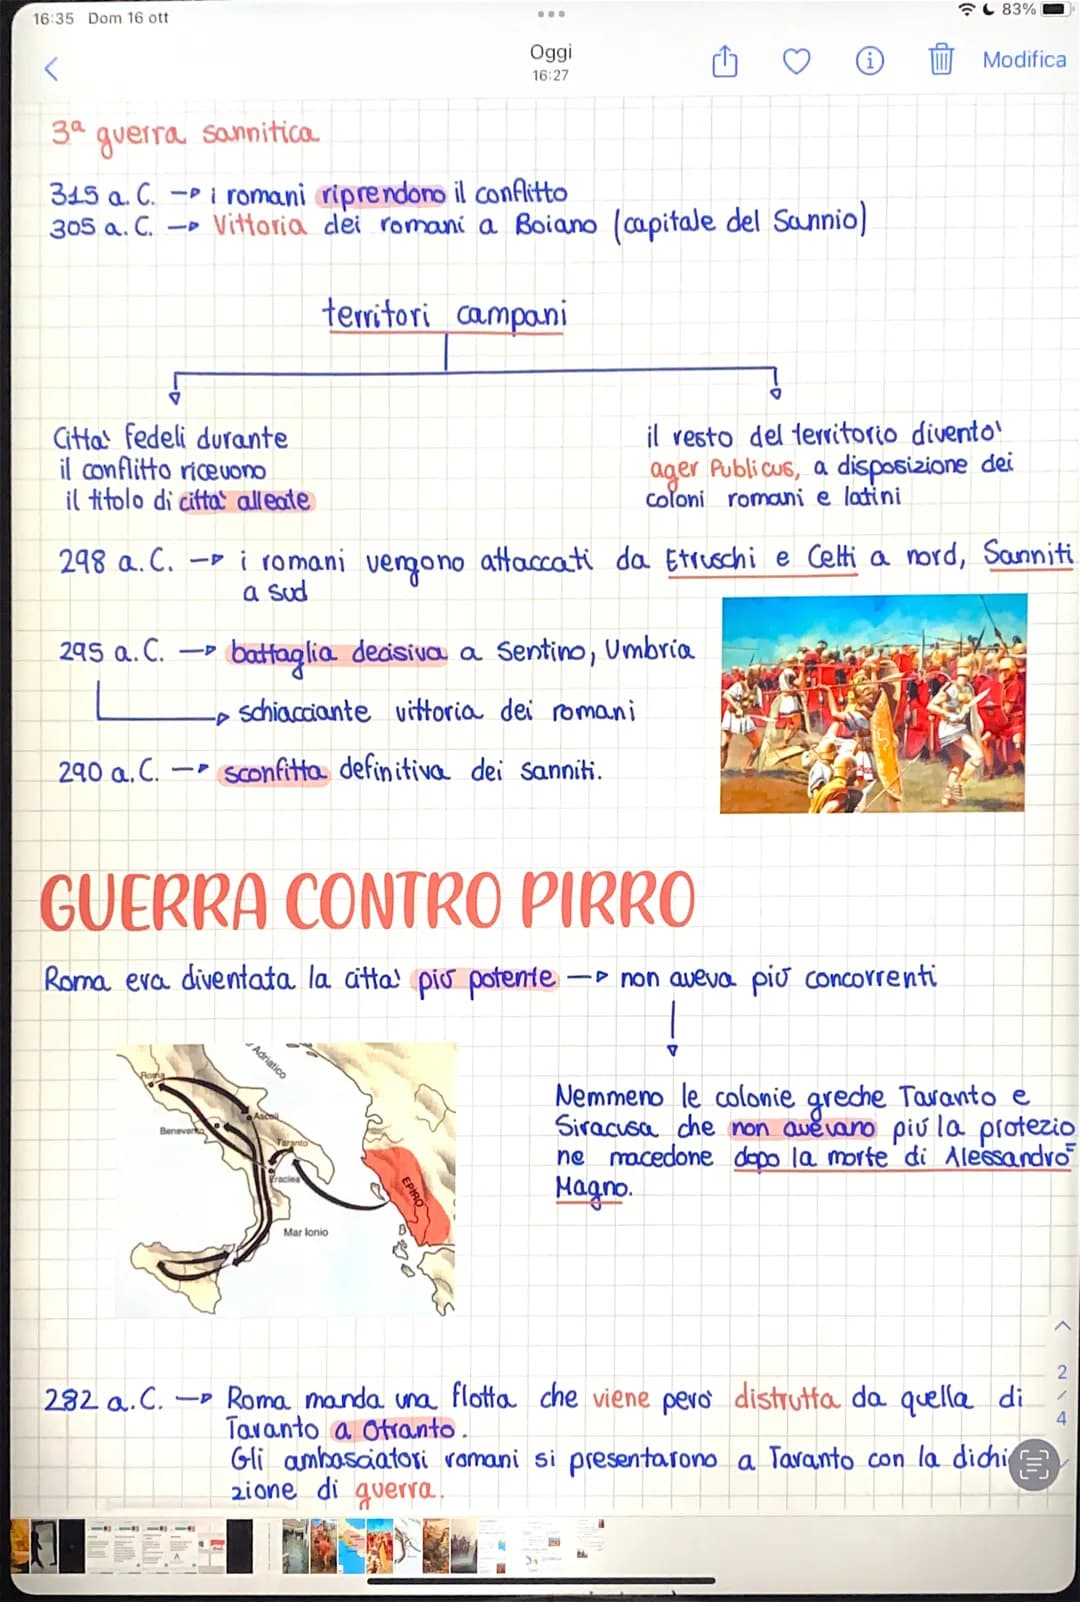 16:35 Dom 16 ott
83%
Oggi
16:27
Modifica
3ª guerra sannitica
315 a.C. → i romani riprendono il conflitto
305 a.C. → Vittoria dei romani a Boiano (capitale del Sannio)
territori campani
Citta' fedeli durante
il conflitto ricevono
il titolo di citta' alleate
il resto del territorio divento'
ager Publicus, a disposizione dei
coloni romani e latini
298 a.C. → i romani vengono attaccati da Etruschi e Celti a nord, Sanniti
a sud
295 a.C. → battaglia decisiva a Sentino, Umbria
schiacciante vittoria dei romani
290 a.C. → sconfitta definitiva dei sanniti.
GUERRA CONTRO PIRRO
Roma era diventata la citta' più potente → non aveva più concorrenti
Adriatico
Roma
Ascoli
Benevento
Taranto
Eraclea
EPIRO
Mar Ionio
Nemmeno le colonie greche Taranto e
Siracusa che non avevano più la protezio
ne macedone dopo la morte di Alessandro
Magno.
282 a.C. → Roma manda una flotta che viene pero' distrutta da quella di
Taranto a Otranto.
Gli ambasciatori romani si presentarono a Taranto con la dichi
zione di guerra.
2
/
4